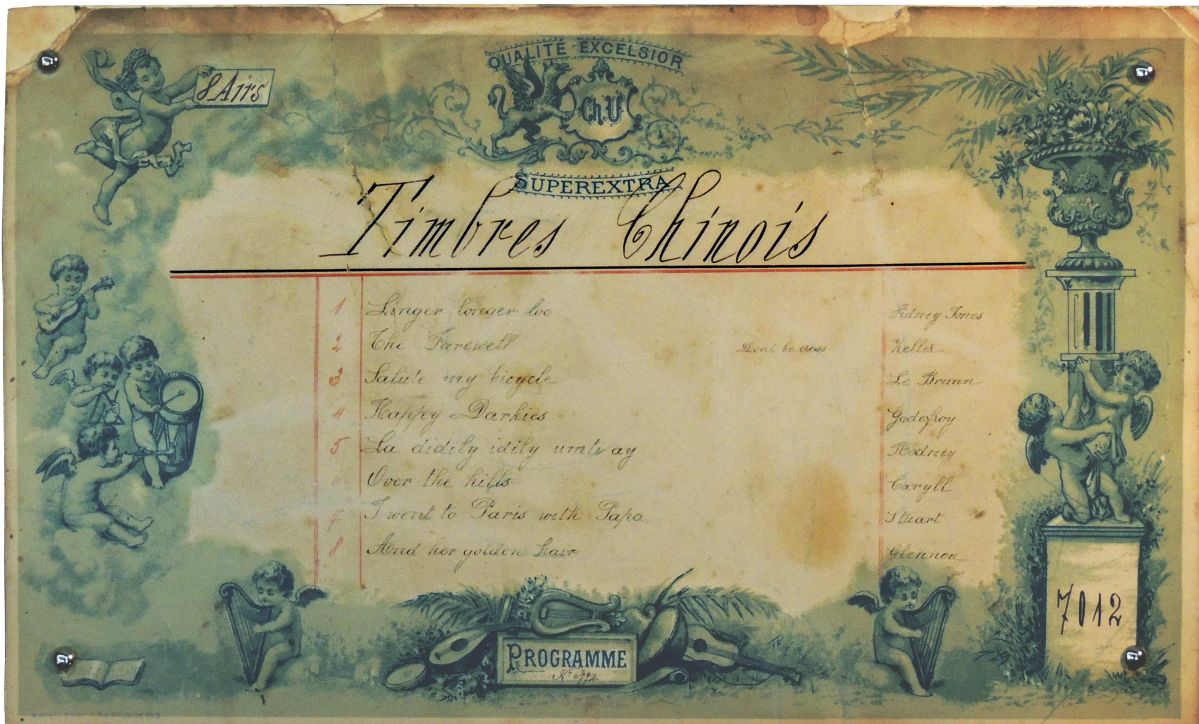 8 Airs
QUALITÉ EXCELSIOR
Ch.U
SUPEREXTRA
Timbres Chinois
1 Linger longer loo Sidney Jones
2 The Farewell Dont be cross Keller
3 Salute my bicycle Le Brunn
4 Happy Darkies Godefroy
5 La didily idily umti ay Rodney
Over the hills Caryll
7 I went to Paris with Papa Stuart
8 And her golden hair Glennon
7012
PROGRAMME
No